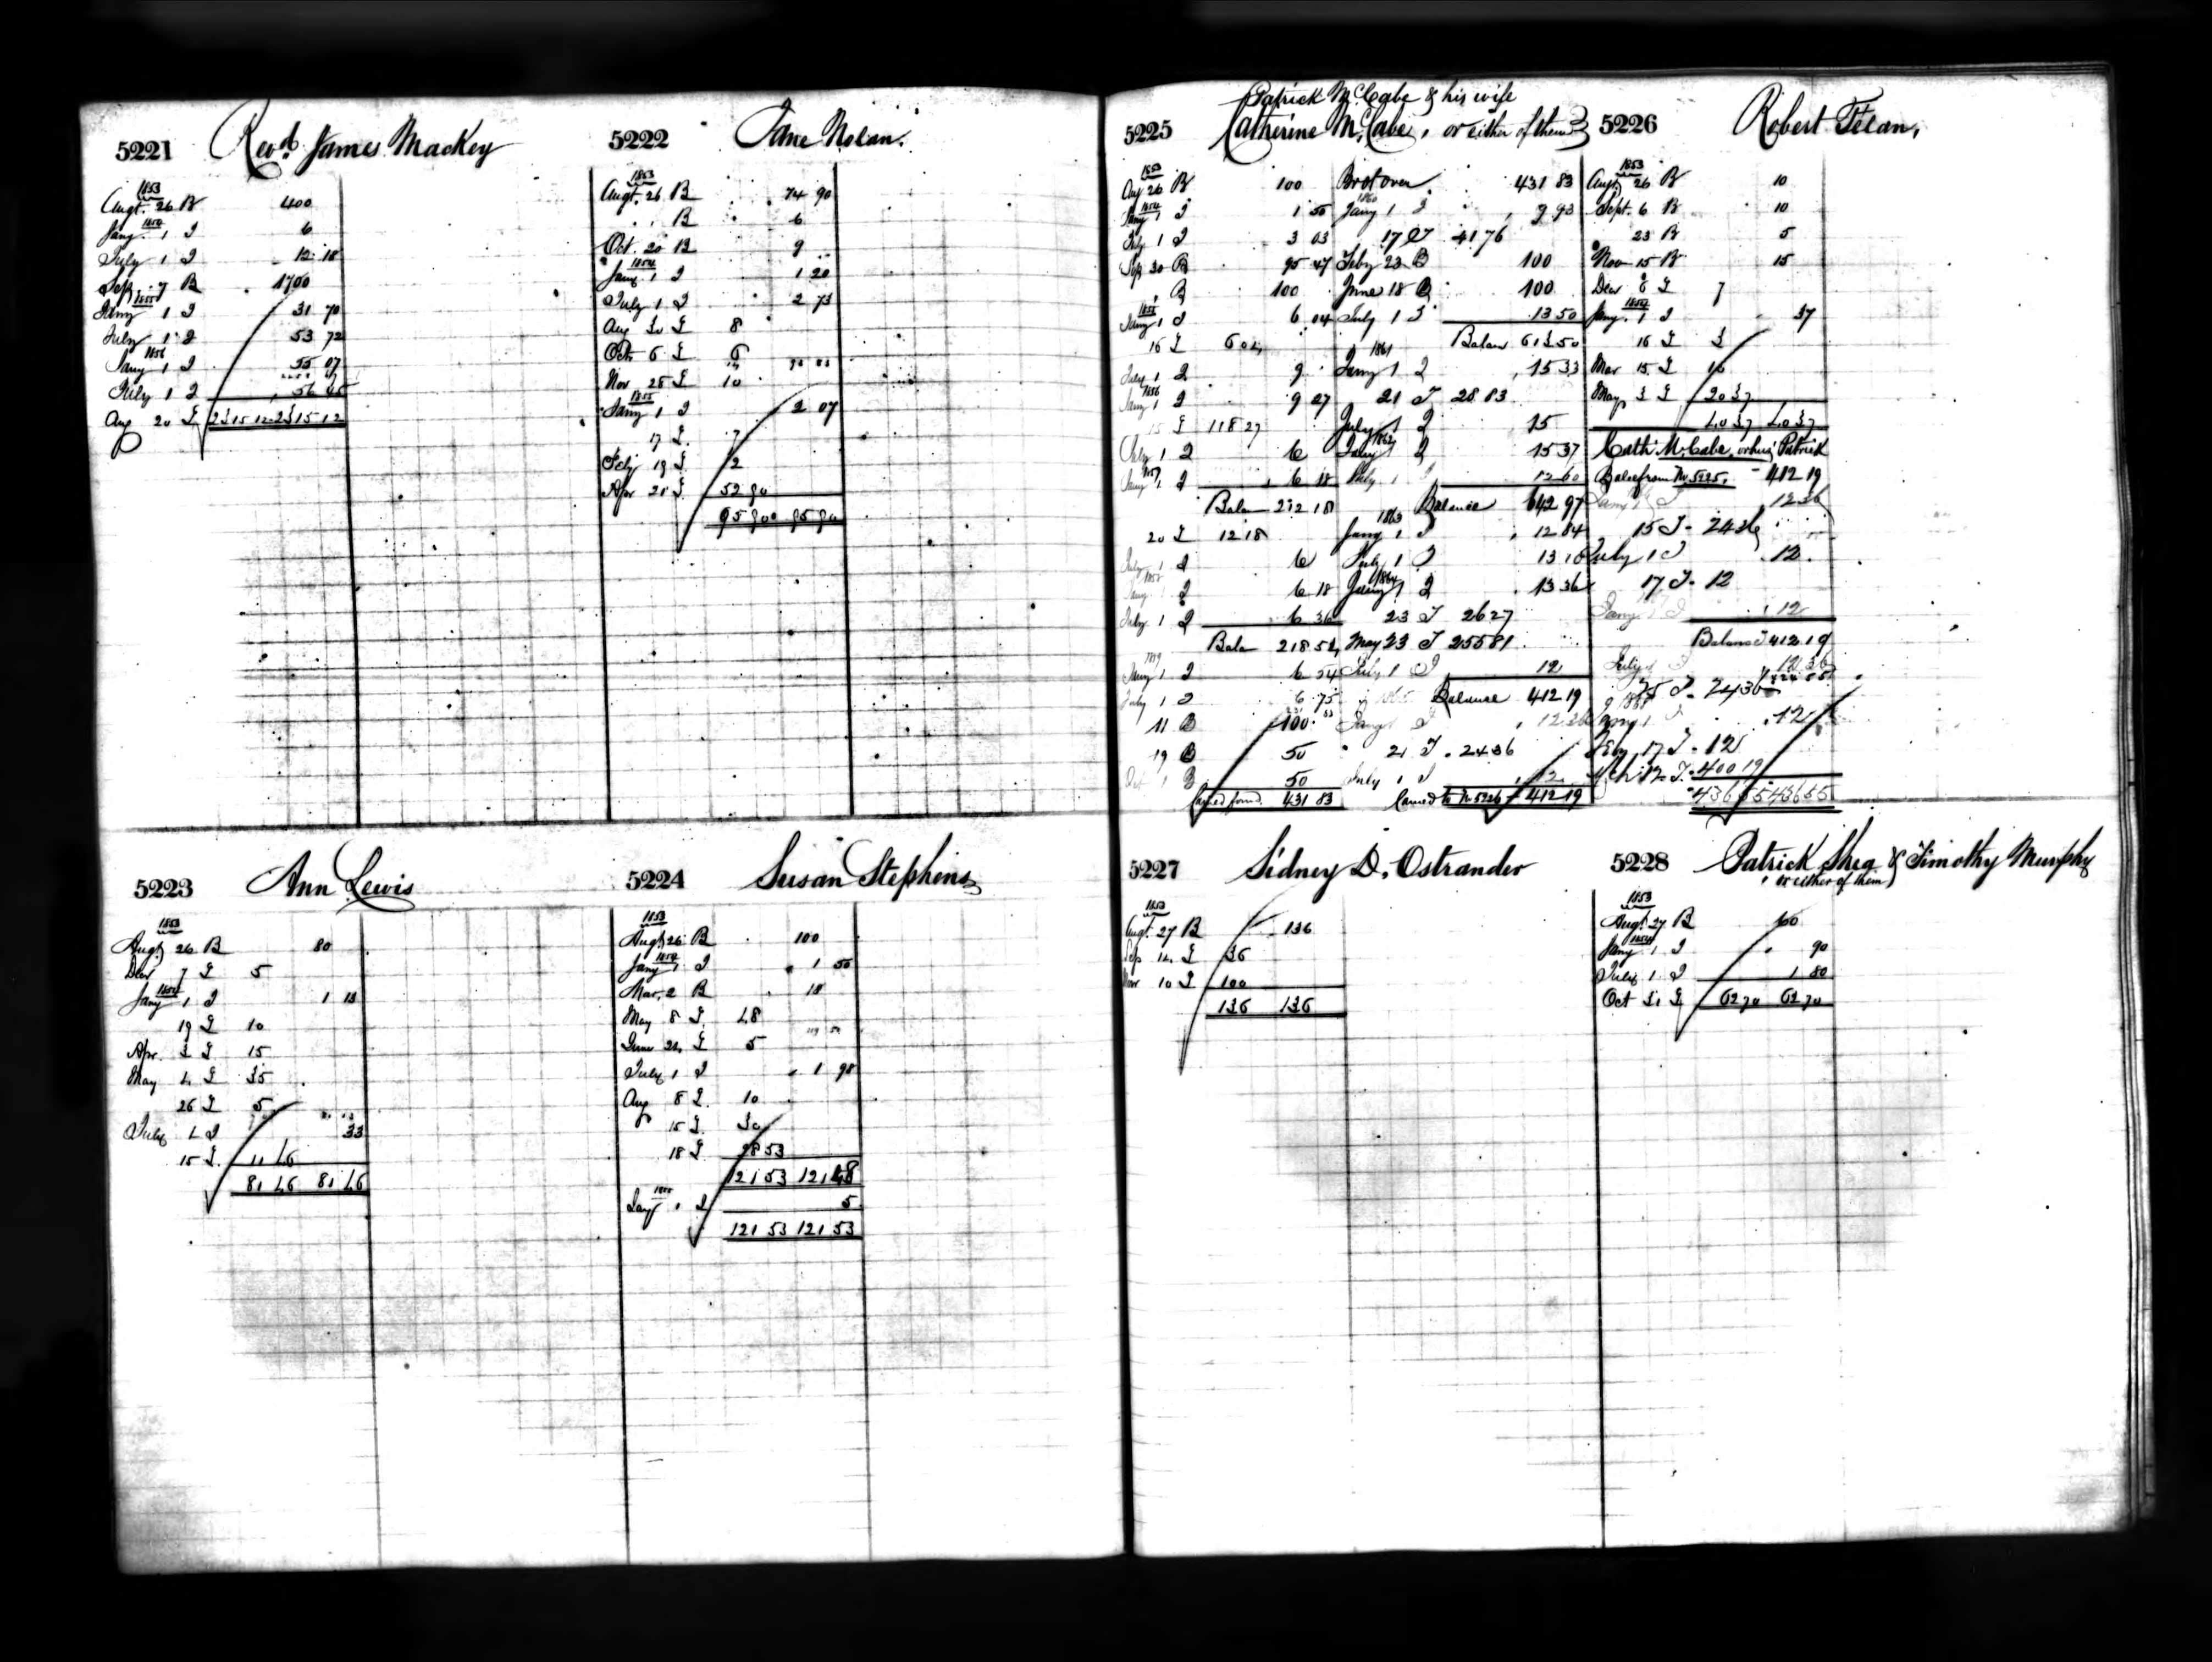 5221 Revd. James Mackey
1853
Augt. 26 B 400
1854
Jany. 1 I 6
July 1 I 12 18
Sep. 7 B 1700
1855
Jany 1 I 31 70
July 1 I 53 72
1856
Jany 1 I 55 07
July 1 I 56 45
Aug 20 T 2315 12 2315 12
5222 Jane Nolan.
1853
Augt. 26 B 74 90
" B 6
Oct. 20 B 9
1854
Jany 1 I 1 20
July 1 I 2 73
Aug 30 T 8
Oct. 6 T 6
Nov 28 T 10
1855
Jany 1 I 2 07
17 T. 7
Feby 19 T. 12
Apr 21 T. 52 90
95 90 95 90
5223 Ann Lewis
1853
Augt 26 B 80
Decr 7 T 5
1854
Jany 1 I 1 13
19 T 10
Apr. 3 T 15
May 4 T 35
26 T 5
July 1 I 33
15 T. 11 46
81 46 81 46
5224 Susan Stephens
1853
Augt 26 B 100
1854
Jany 1 I 1 50
Mar. 2 B 18
May 8 T. 48
June 24 T 5
July 1 I 1 98
Aug 8 T. 10
15 T. 30
18 T 28 53
121 53 121 48
1855
Jany 1 I 5
121 53 121 53
Patrick McCabe & his wife
5225 Catherine McCabe, or either of them
1853
Aug 26 B 100
1854
Jany 1 I 1 50
July 1 I 3 03
Sep 30 B 95 47
" B 100
1855
Jany 1 I 6 04
16 T 6 04
July 1 I 9
1856
Jany 1 I 9 27
15 T 118 27
July 1 I 6
1857
Jany 1 I 6 18
Balan 212 18
20 T 12 18
July 1 I 6
1858
Jany 1 I 6 18
July 1 I 6 36
Balan 218 54
1859
Jany 1 I 6 54
July 1 I 6 75
11 B 100
19 B 50
Oct 1 B 50
Carried forwd. 431 83
Brot over. 431 83
1860
Jany 1 I 9 93
17 T 41 76
Feby 23 B 100
June 18 B 100
July 1 I 13 50
Balan 613 50
1861
Jany 1 I 15 33
21 T 28 83
July 1 I 15
1862
Jany 1 I 15 37
July 1 I 12 60
Balance 642 97
1863
Jany 1 I 12 84
July 1 I 13 10
1864
Jany 1 I 13 36
23 T 26 27
May 23 T 255 81
July 1 I 12
Balance 412 19
1865
Jany 1 I 12 36
21 T. 24 36
July 1 I 12
Carried to No 5226 412 19
5226 Robert Felan,
1853
Augt. 26 B 10
Sept. 6 B 10
23 B 5
Nov 15 B 15
Decr 8 T 7
1854
Jany. 1 I 37
16 T 3
Mar 15 T 10
May 3 T 20 37
40 37 40 37
Cath McCabe, or Patrick
Balce from No 5225. 412 19
Jany 1 I 12 36
15 T. 24 36
July 1 I 12.
17 T. 12
Jany 1 I 12
Balance 412 19
July 1 I 12 36
25 T. 24 36
1868
Jany 1 I 12
Feby 17 T. 12
Mch 12 T. 400 19
436 55 436 55
5227 Sidney D. Ostrander
1853
Augt. 27 B 136
Sep 14 T 36
Nov 10 T 100
136 136
5228 Patrick Shea & Timothy Murphy
(or either of them)
1853
Augt 27 B 60
1854
Jany 1 I 90
July 1 I 1 80
Oct 31 T 62 70 62 70